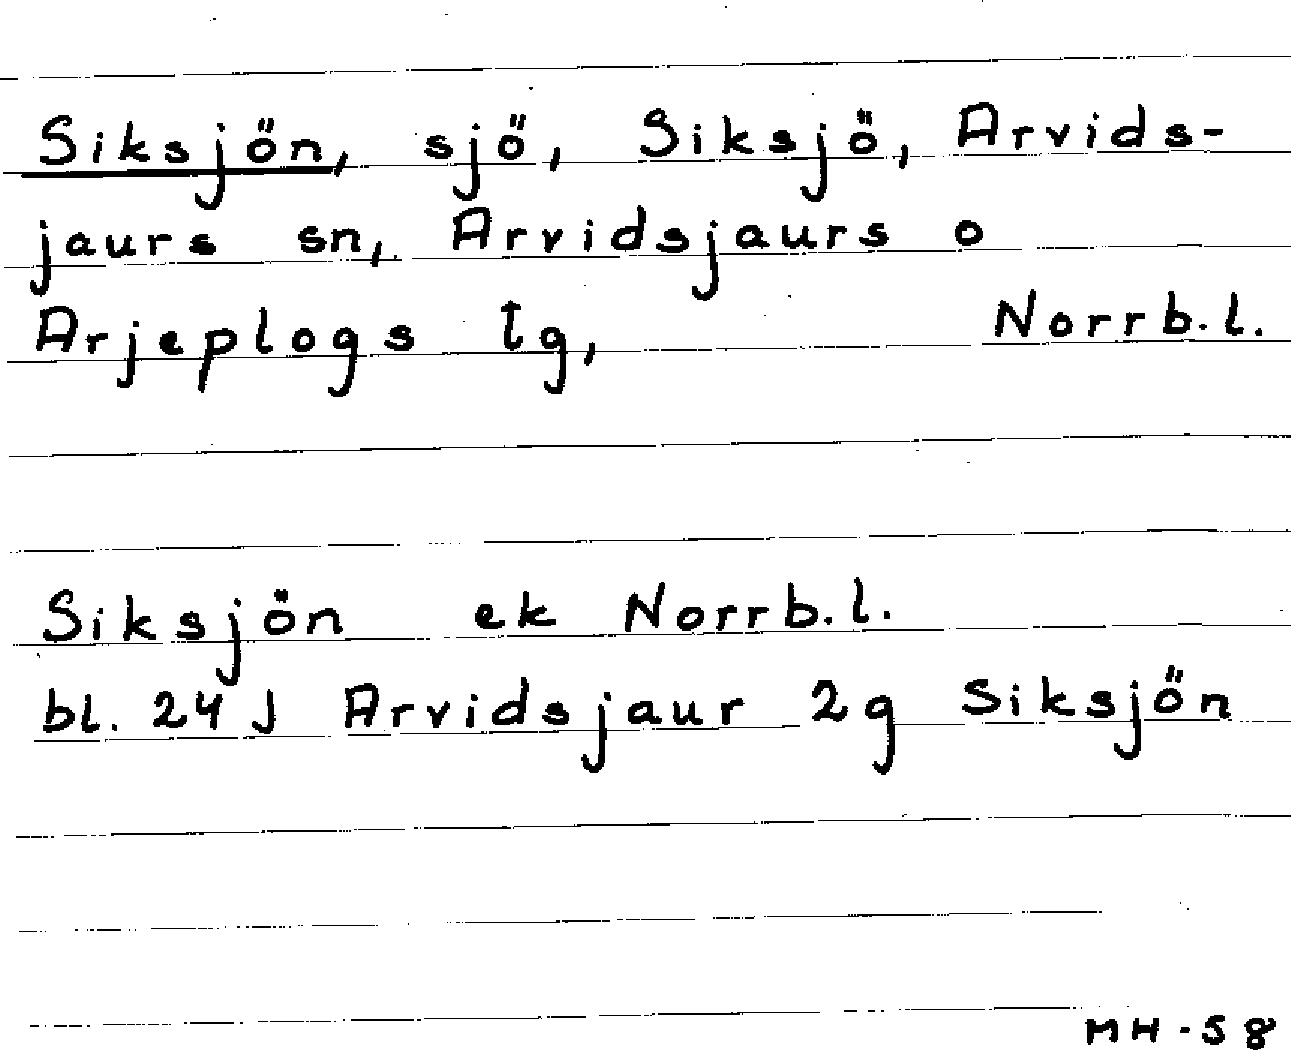 Siksjön, sjö, Siksjö, Arvids-
jaurs sn, Arvidsjaurs o
Arjeplogs tg, Norrb.l.
Siksjön ek Norrb.l.
bl. 24 J Arvidsjaur 2g Siksjön
MH-58